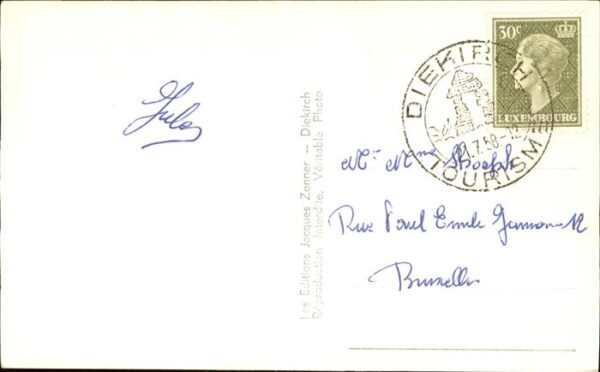 Jules
Les Editions Jacques Zenner — Diekirch
Réproduction Interdite, Véritable Photo
30c
LUXEMBOURG
DIEKIRCH
.7.58-12
TOURISM
Mr Mme
Rue Paul Emile 12
Bruxelles